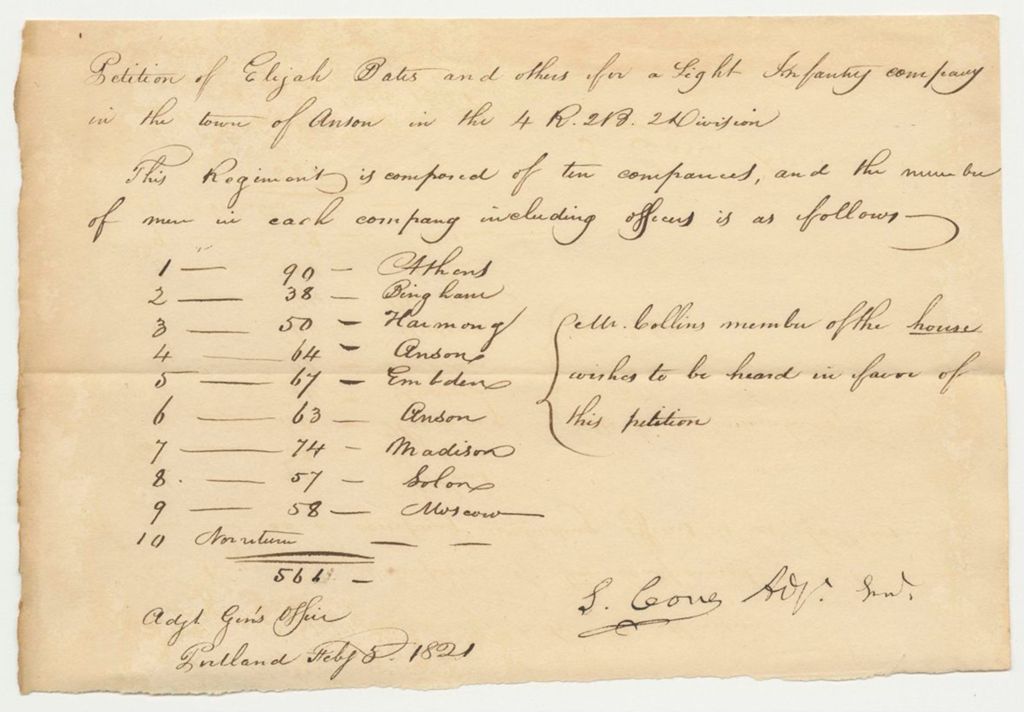 Petition of Elijah Bates and others for a Light Infantry company
in the town of Anson in the 4 R. 2 B. 2 Division
This Regiment is composed of ten companies, and the number
of men in each company including officers is as follows
1 — 90 — Athens
2 — 38 — Bingham
3 — 50 — Harmony
4 — 64 — Anson
5 — 67 — Embden
6 — 63 — Anson
7 — 74 — Madison
8 — 57 — Solon
9 — 58 — Moscow
10 No return — —
561 —
Mr. Collins member of the house
wishes to be heard in favor of
this petition
S. Cony Adjt. Genl.
Adjt Gen's Office
Portland Feby 5. 1821